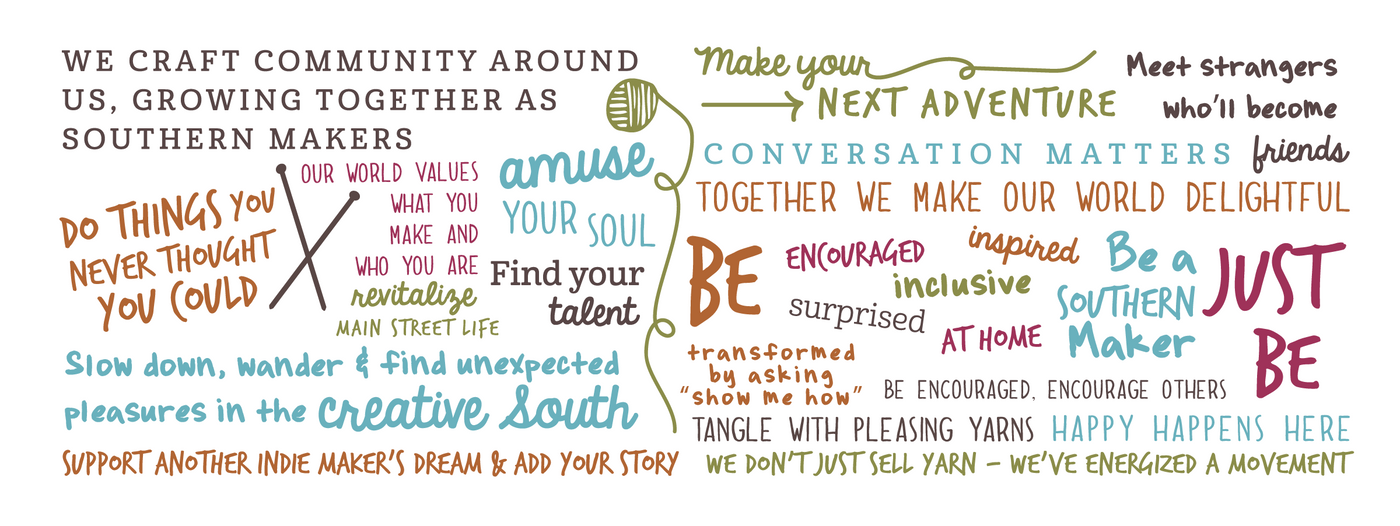 WE CRAFT COMMUNITY AROUND
US, GROWING TOGETHER AS
SOUTHERN MAKERS
DO THINGS YOU
NEVER THOUGHT
YOU COULD
OUR WORLD VALUES
WHAT YOU
MAKE AND
WHO YOU ARE
revitalize
MAIN STREET LIFE
amuse
YOUR SOUL
Find your
talent
Slow down, wander & find unexpected
pleasures in the creative South
SUPPORT ANOTHER INDIE MAKER'S DREAM & ADD YOUR STORY
Make your
NEXT ADVENTURE
Meet strangers
who'll become
friends
CONVERSATION MATTERS
TOGETHER WE MAKE OUR WORLD DELIGHTFUL
BE
ENCOURAGED
inspired
inclusive
surprised
AT HOME
transformed
by asking
"show me how"
Be a
SOUTHERN
Maker
JUST
BE
BE ENCOURAGED, ENCOURAGE OTHERS
TANGLE WITH PLEASING YARNS
HAPPY HAPPENS HERE
WE DON'T JUST SELL YARN – WE'VE ENERGIZED A MOVEMENT